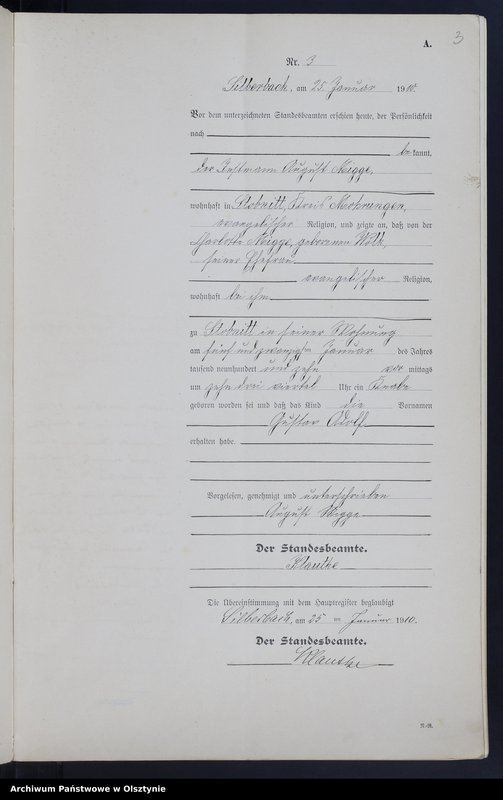 A.
3
Nr. 3
Silberbach, am 25. Januar 1910.
Vor dem unterzeichneten Standesbeamten erschien heute, der Persönlichkeit
nach
be kannt,
der Instmann August Migge,
wohnhaft in Plobnitt, Kreis Mohrungen,
evangelischer Religion, und zeigte an, daß von der
Charlotte Migge, geborenen Wolk,
seiner Ehefrau
evangelischer Religion,
wohnhaft bei ihm
zu Plobnitt in seiner Wohnung
am fünf und zwanzigsten Januar des Jahres
tausend neunhundert und zehn vor mittags
um zehn drei viertel Uhr ein Knabe
geboren worden sei und daß das Kind die Vornamen
Gustav Adolf
erhalten habe.
Vorgelesen, genehmigt und unterschrieben
August Migge
Der Standesbeamte.
Klautke
Die Übereinstimmung mit dem Hauptregister beglaubigt
Silberbach, am 25 ten Januar 1910.
Der Standesbeamte.
Klautke
Archiwum Państwowe w Olsztynie